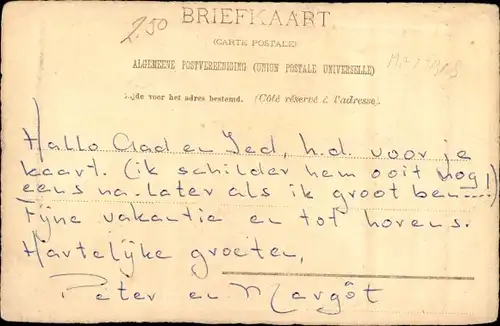 2.50
BRIEFKAART
(CARTE POSTALE)
ALGEMEENE POSTVEREENIGING (UNION POSTALE UNIVERSELLE)
Zijde voor het adres bestemd. (Côté réservé à l'adresse).
Hallo Aad en Jed, h.d. voor je
kaart. (ik schilder hem ooit nog
eens na.. later als ik groot ben....!)
Fijne vakantie en tot horens.
Hartelijke groeten,
Peter en Margôt